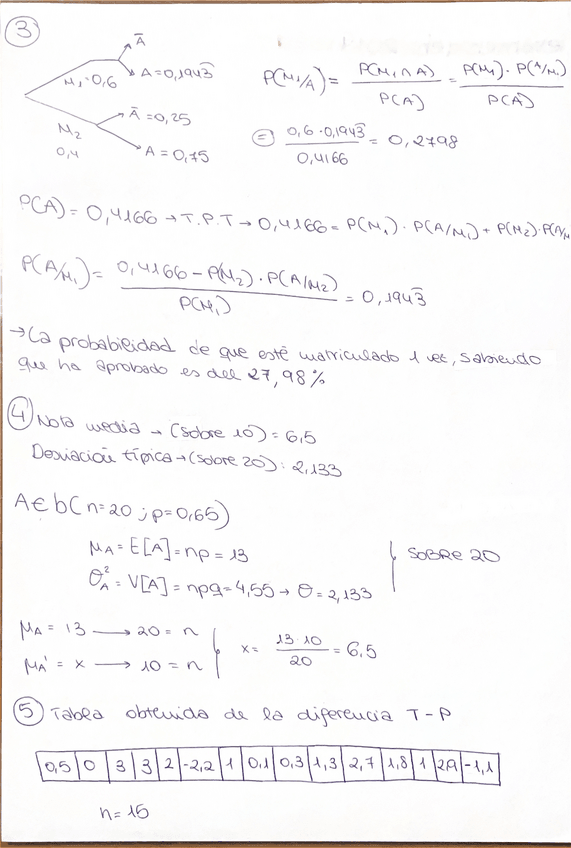 3
Ā
M₁ = 0,6
A = 0,1943̄
M₂
0,4
Ā = 0,25
A = 0,75
P(M₁/A) = P(M₁ ∩ A) / P(A) = P(M₁) · P(A/M₁) / P(A)
= 0,6 · 0,1943̄ / 0,4166 = 0,2798
P(A) = 0,4166 → T.P.T → 0,4166 = P(M₁) · P(A/M₁) + P(M₂) · P(A/M
P(A/M₁) = 0,4166 - P(M₂) · P(A/M₂) / P(M₁) = 0,1943̄
→ La probabilidad de que esté matriculado 1 vez, sabiendo
que ha aprobado es del 27,98%
4 Nota media → (sobre 10) = 6,5
Desviación típica → (sobre 20) : 2,133
A ∈ b(n=20 ; p=0,65)
μA = E[A] = np = 13
θ²A = V[A] = npq = 4,55 → θ = 2,133
SOBRE 20
μA = 13 → 20 = n
μA' = x → 10 = n
x = 13·10 / 20 = 6,5
5 Tabla obtenida de la diferencia T-P
0,5 0 3 3 2 -2,2 1 0,1 0,3 1,3 2,7 1,8 1 -1,1
n = 15